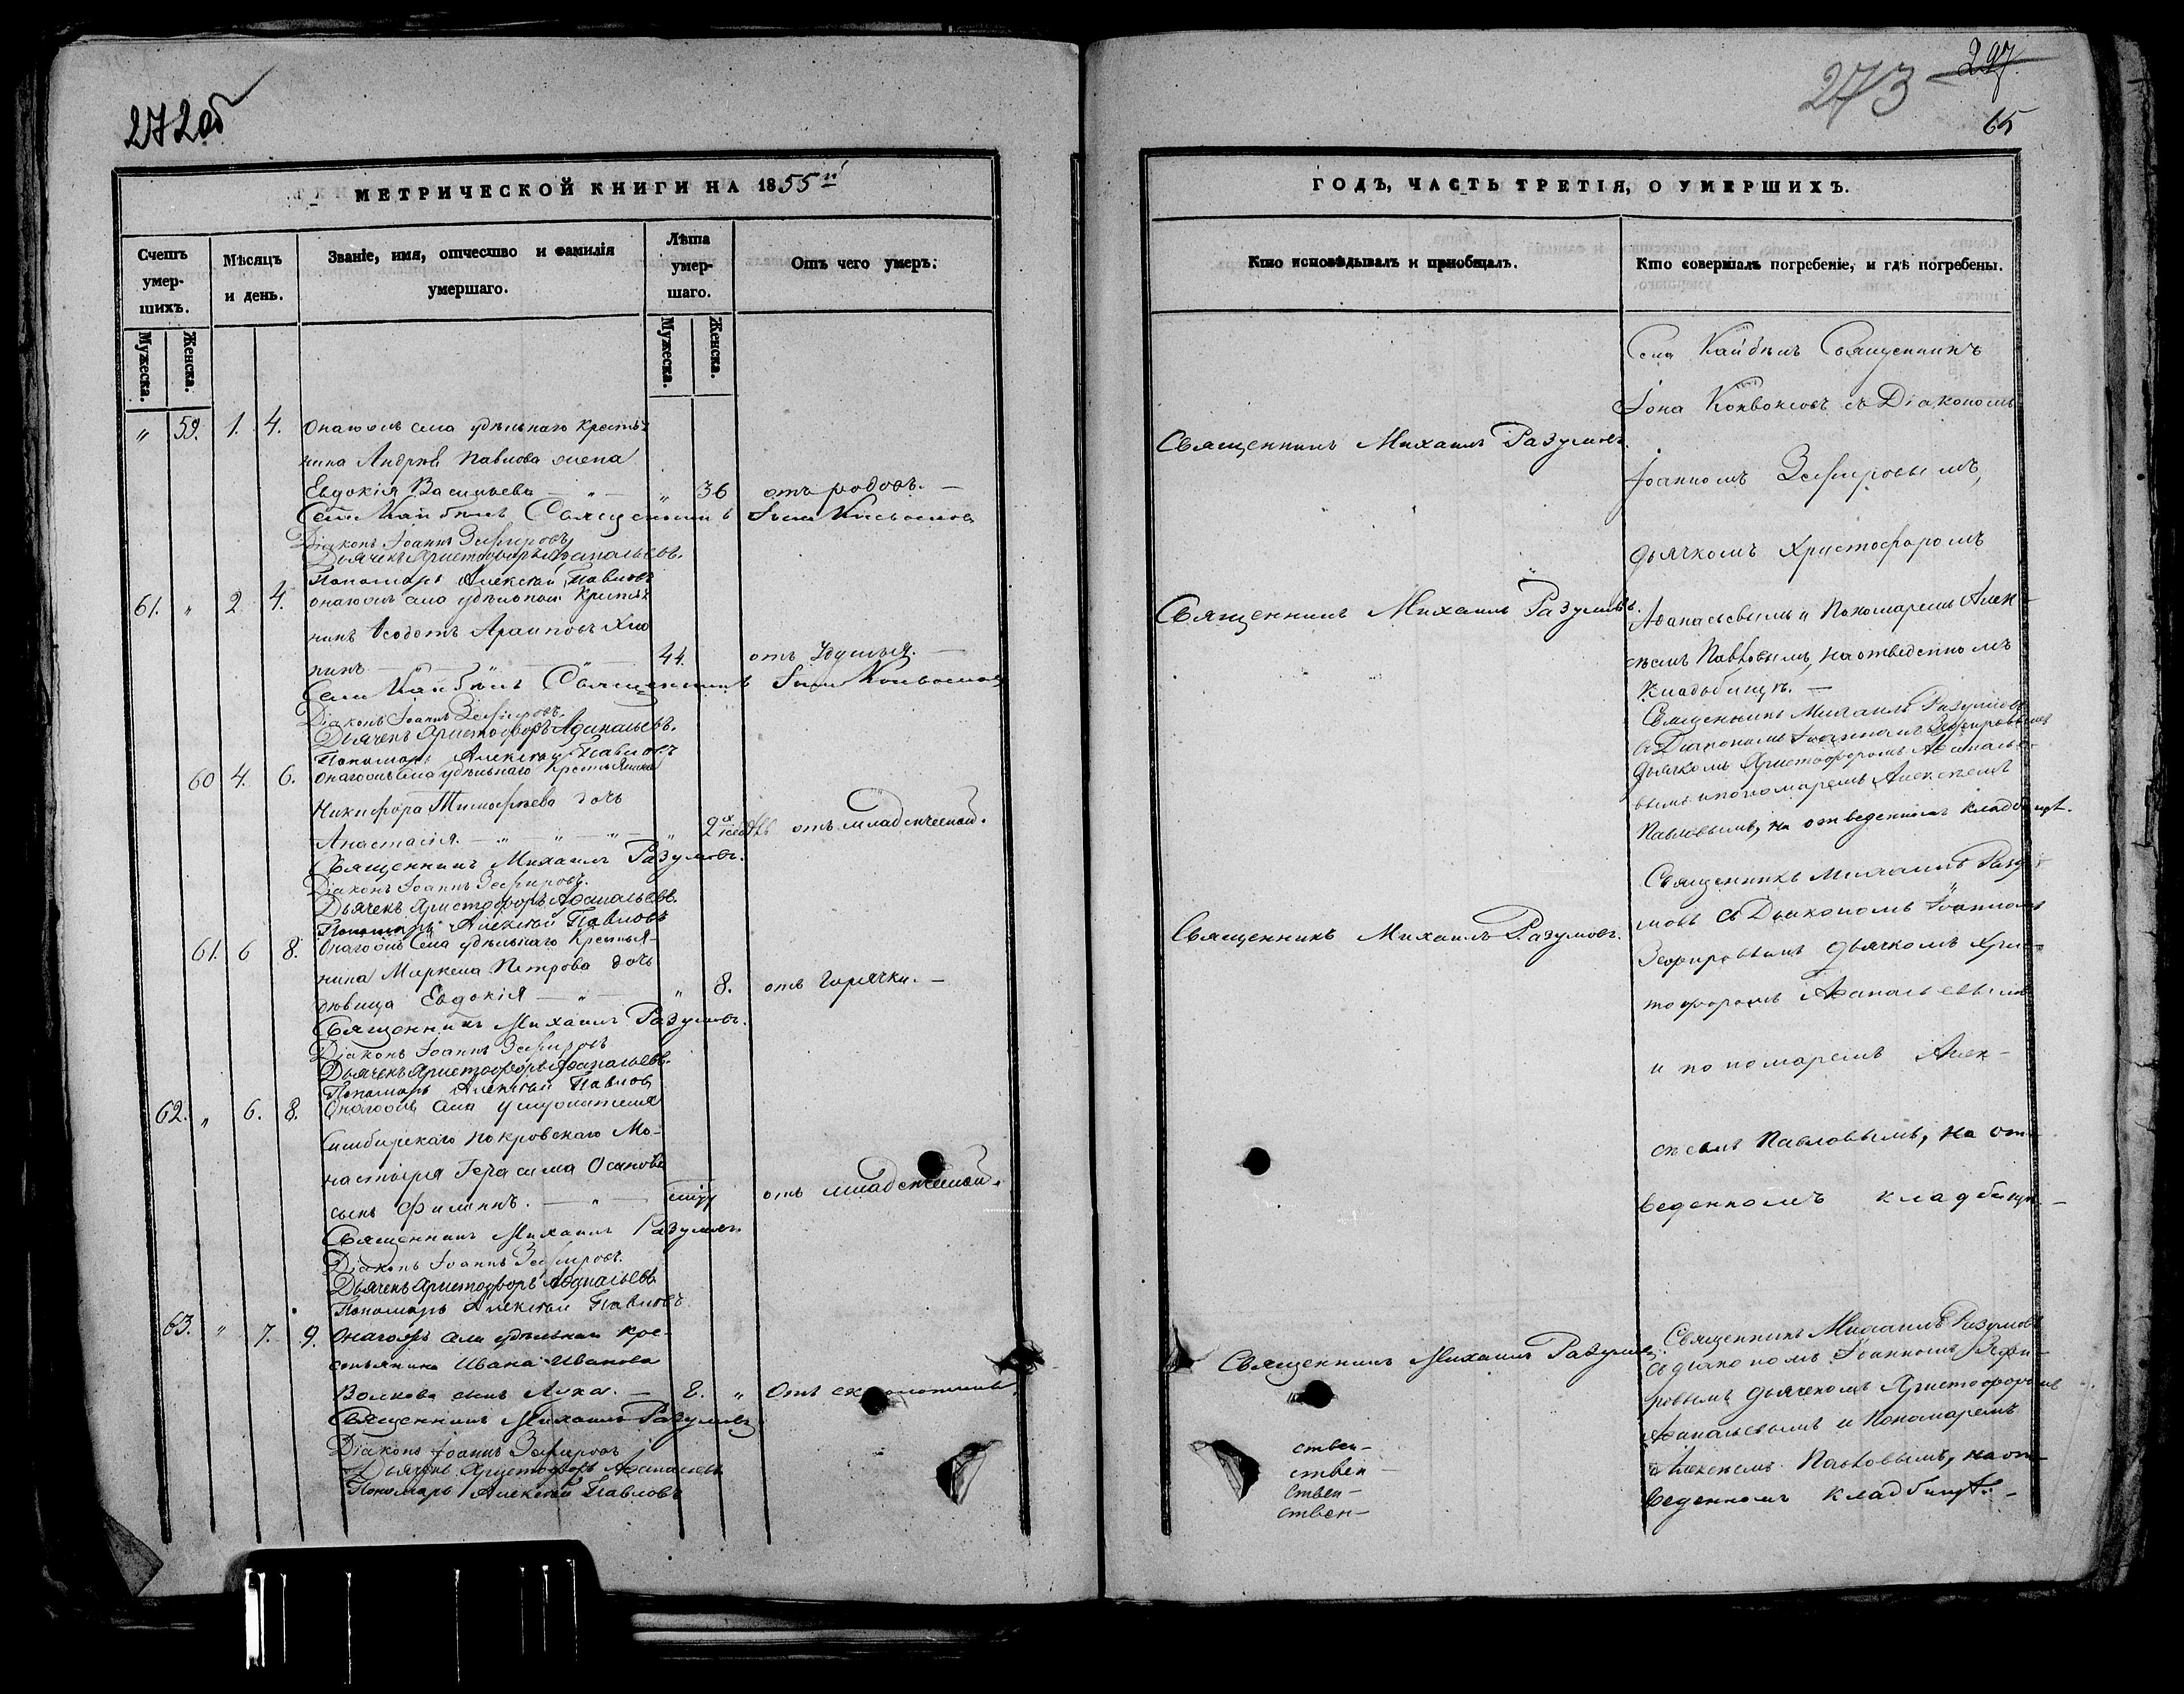 272об
МЕТРИЧЕСКОЙ КНИГИ НА 1855й
Счетъ умер-шихъ.
Мужеска.
Женска.
Мѣсяцъ и день.
Званіе, имя, отчество и фамилія умершаго.
Лѣта умер-шаго.
Мужеска.
Женска.
Отъ чего умеръ.
„ 59. 1. 4. Онагожъ села удѣльнаго крестья-
нина Андрея Павлова жена
Евдокія Васильева — „ — „ 36 отъ родовъ. —
Села Кайбелъ Священникъ Іона
Діаконъ Іоаннъ Зефировъ
Дьячекъ Христофоръ Аѳанасьевъ.
Пономарь Алексѣй Павловъ
61. „ 2. 4. Онагожъ села удѣльной крестья-
нинъ Ѳеодотъ
нинъ — „ — „ — „ — 44. отъ удушья. —
Села Кайбелъ Священникъ Іона
Діаконъ Іоаннъ Зефировъ.
Дьячекъ Христофоръ Аѳанасьевъ.
Пономарь Алексѣй Павловъ
60 4. 6. Онагожъ села удѣльнаго крестьянина
Никифора Тимофѣева дочь
Анастасія. — „ — „ — „ — „ 2х отъ младенческой.
Священникъ Михаилъ Разумовъ.
Діаконъ Іоаннъ Зефировъ.
Дьячекъ Христофоръ Аѳанасьевъ.
Пономарь Алексѣй Павловъ
61. 6 8. Онагожъ села удѣльнаго крестья-
нина Меркела Петрова дочь
дѣвица Евдокія — „ — „ 8. отъ горячки. —
Священникъ Михаилъ Разумовъ.
Діаконъ Іоаннъ Зефировъ
Дьячекъ Христофоръ Аѳанасьевъ.
Пономарь Алексѣй Павловъ
62. „ 6. 8. Онагожъ села
Симбирскаго Покровскаго Мо-
настыря Герасима Осипова
сынъ Филиппъ. — „ — отъ младенческой.
Священникъ Михаилъ Разумовъ.
Діаконъ Іоаннъ Зефировъ.
Дьячекъ Христофоръ Аѳанасьевъ
Пономарь Алексѣй Павловъ
63. „ 7. 9. Онагожъ села удѣльнаго кре-
стьянина Ивана Иванова
Волкова сынъ Лука. — 8. „ Отъ
Священникъ Михаилъ Разумовъ
Діаконъ Іоаннъ Зефировъ
Дьячекъ Христофоръ Аѳанасьевъ
Пономарь Алексѣй Павловъ
297.
273
65
ГОДЪ, ЧАСТЬ ТРЕТІЯ, О УМЕРШИХЪ.
Кто исповѣдывалъ и пріобщалъ.
Кто совершалъ погребеніе, и гдѣ погребены.
Села Кайбелъ Священникъ
Іона съ Діакономъ
Священникъ Михаилъ Разумовъ.
Іоанномъ Зефировымъ,
дьячкомъ Христофоромъ
Священникъ Михаилъ Разумовъ.
Аѳанасьевымъ и Пономаремъ Алек-
сѣемъ Павловымъ, на отведенномъ
кладбищѣ. —
Священникъ Михаилъ Разумовъ
съ Діакономъ Іоанномъ Зефировымъ
дьячкомъ Христофоромъ Аѳанасье-
вымъ и пономаремъ Алексѣемъ
Павловымъ, на отведенномъ кладбищѣ.
Священникъ Михаилъ Разу-
мовъ съ Діакономъ Іоанномъ
Священникъ Михаилъ Разумовъ.
Зефировымъ дьячкомъ Хрис-
тофоромъ Аѳанасьевымъ
и пономаремъ Алек-
сѣемъ Павловымъ, на от-
веденномъ кладбищѣ —
Священникъ Михаилъ Разумовъ
съ діакономъ Іоанномъ Зефи-
Священникъ Михаилъ Разумовъ
ровымъ дьячкомъ Христофоромъ
Аѳанасьевымъ и Пономаремъ
Алексѣемъ Павловымъ, на от-
веденномъ кладбищѣ. —
ствен-
ствен-
ствен-
ствен-